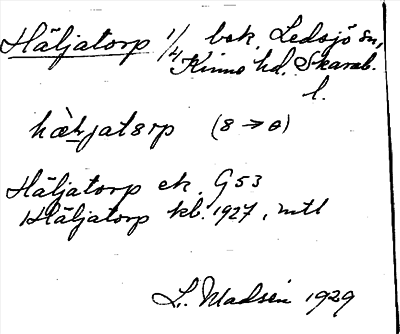 Häljatorp 1/4 bok. Ledsjö sn,
Kinne hd. Skarab.
l.
hæ̀ljatɞrp (ɞ → ɵ)
Häljatorp ek. G53
Häljatorp kb. 1927, mtl
L. Madsén 1929